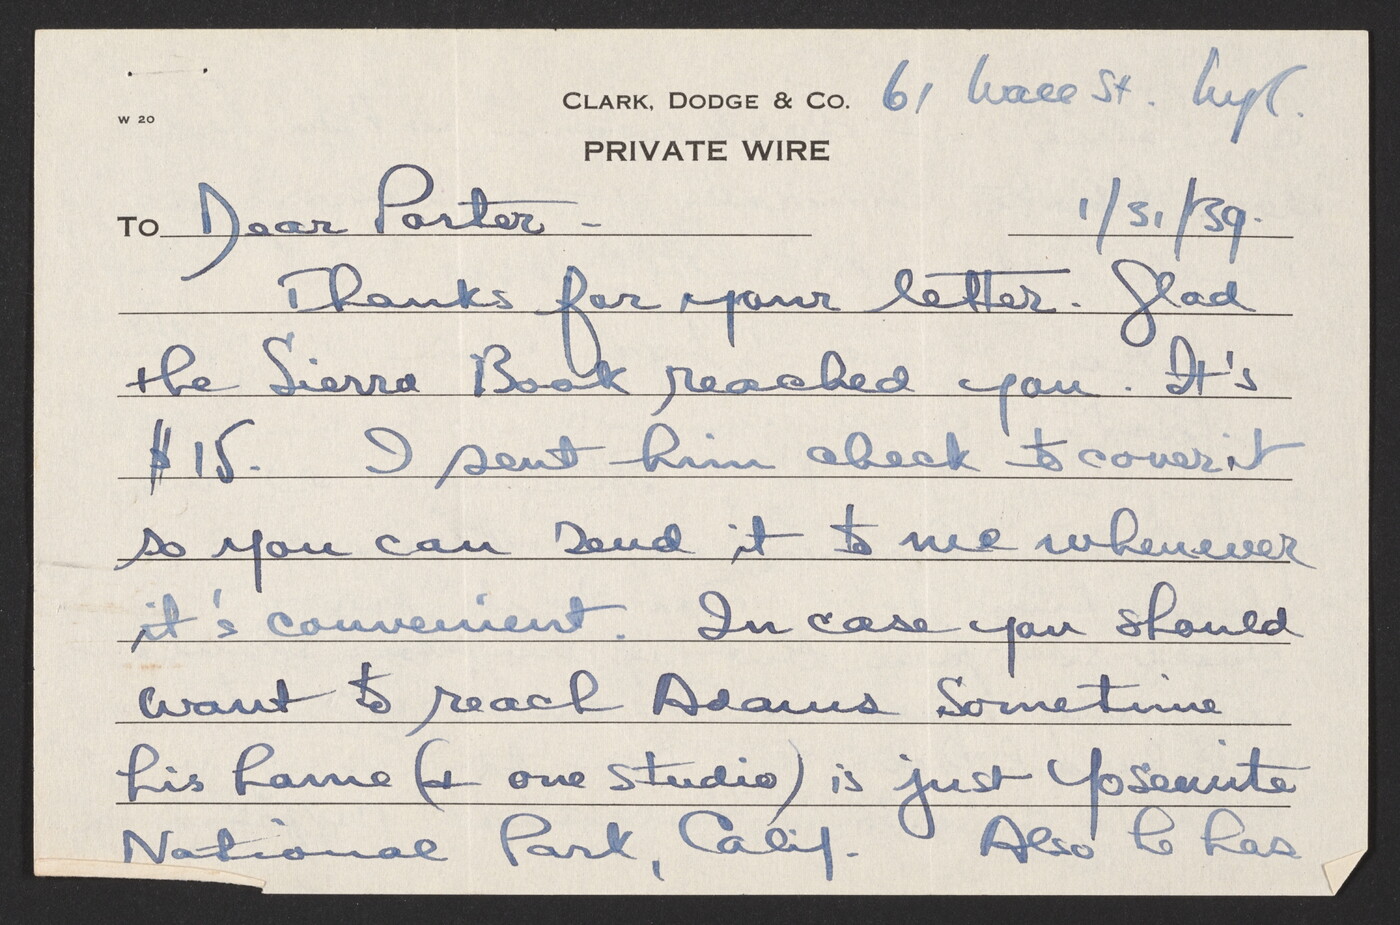 CLARK, DODGE & CO. 61 Wall St. NYC.
W 20
PRIVATE WIRE
TO Dear Porter - 1/31/39.
Thanks for your letter. Glad
the Sierra Book reached you. It's
$15. I sent him check to cover it
so you can send it to me whenever
it's convenient. In case you should
want to reach Adams sometime
his home (+ one studio) is just Yosemite
National Park, Calif. Also he has